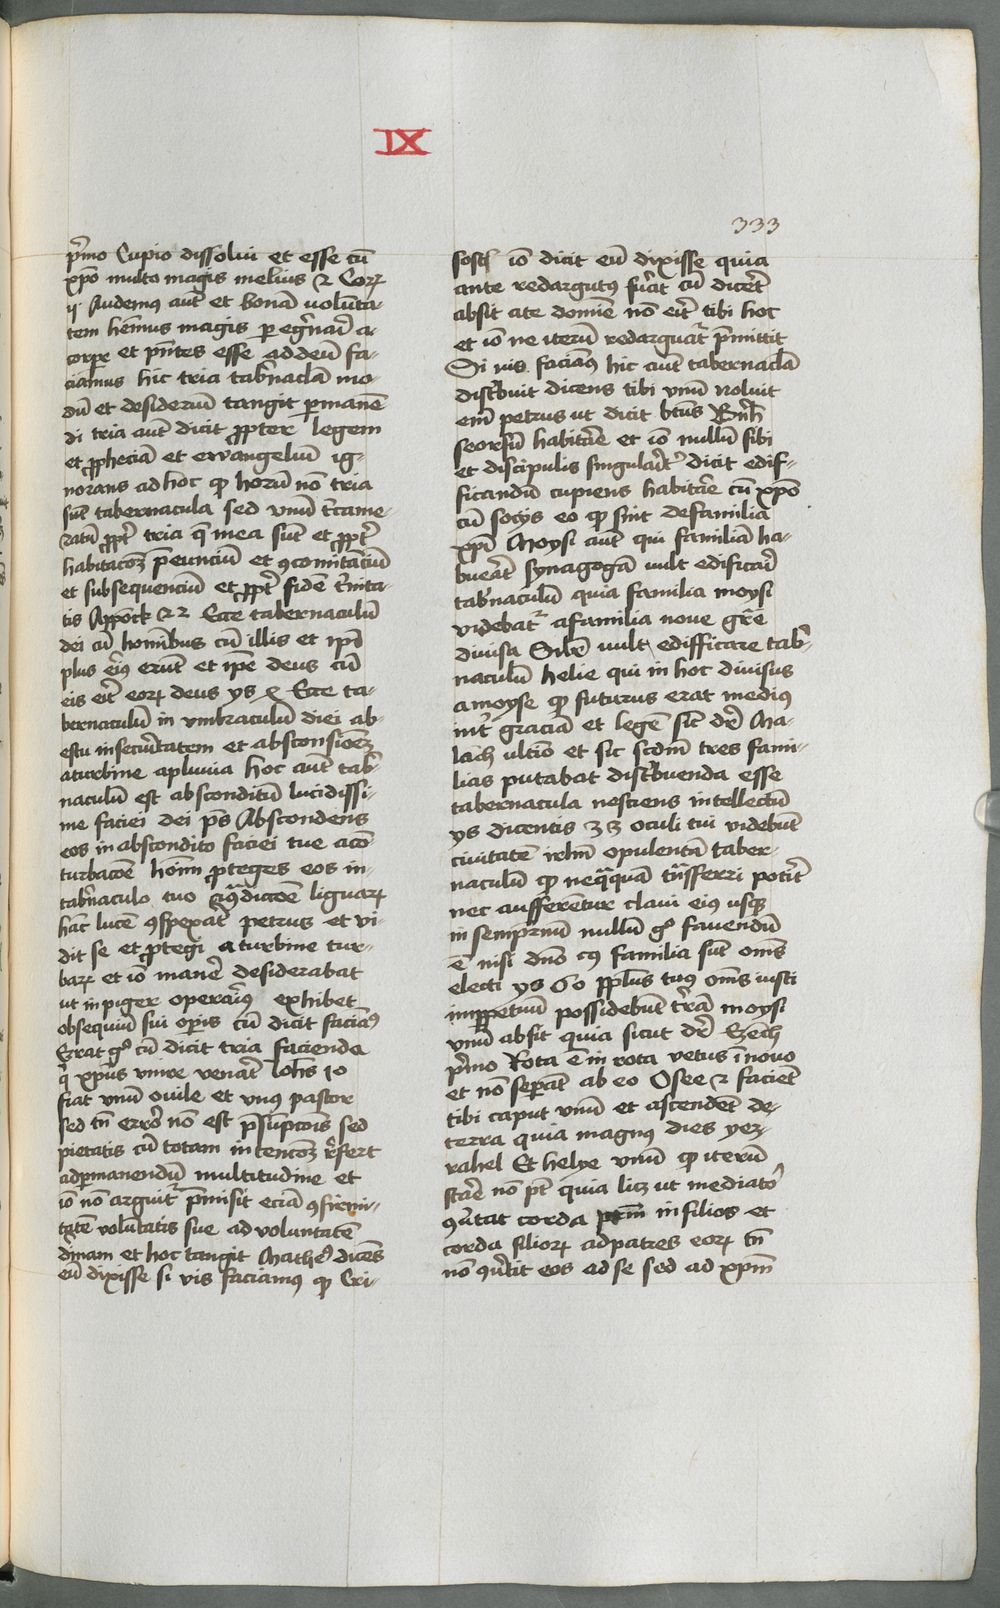 IX
333
p̄mo Cupio dissolui et esse cū
xpō multo magis melius ⁊ Corꝝ
ij Audemꝰ aut̄ et bonā volūta-
tem hēmus magis peḡnarī a
corpe et pn̄tes esse ad deū fa-
ciamus hic tria tab̄naclā mo-
dū et desideriū tangit p̄manē
di tria aut̄ dicit ꝓpter legem
et ꝓpheciā et ewangeliū ig-
norans ad hoc ꝙ horū nō tria
sūt tabernacula sed vnū
tria q̄ mea sūt et ꝓpt̄
et subsequenciū et ꝓpt̄ fidē t̄nita-
tis Appock 22 Ecce tabernaculū
dei cū homībus cū illis et ip̄i
plus eiꝰ erūt et ip̄e deus cū
eis eīt eorꝝ deus ys Ecce ta-
bernaculū in vmbraculū diei ab-
estu in secūtatem et absconsiōeꝫ
a turbine a pluuia hoc aut̄ tab̄-
naculū est absconditū lucidissi-
me faciei dei pˢ Abscondens
eos in abscondito faciei tue a cō
turbacōe hoīm ꝓteges eos in
tab̄naculo tuo linguarꝝ
hāc lucē ꝯspexāt petrus et vi-
dit se et ꝓtegi a turbine tur-
barꝝ et iō manē desiderabat
ut inpiger operariꝰ exhibet
obsequiū sui opis cū dicit faciaꝰ
Errat gͦ cū dicit tria facienda
q̄ xpūs vnire venat̄ Iohis 10
fiat vnū ouile et vnꝰ pastor
sed tn̄ error nō est p̄sūpcōis sed
pietatis cū totam intencōeꝫ r̄fert
ad p̄manendū multitudine et
iō nō arguit̄ p̄misit eciā ꝯfirmi-
tatē volūtatis sue ad voluntatē
dīnam et hoc tangit Matheꝰ dicēs
eū dixisse si vis faciamꝰ ꝙ Cri-
sost̄ iō dicit eū dixisse quia
ante redargutꝰ fūat cū dicēt
absit a te domīe nō eīt tibi hoc
et iō ne iterū redarguat̄ p̄mittit
Si vis faciaꝰ hic aut̄ tabernaclā
distbuit dicens tibi vnū noluit
eni petrus ut dicit btūs Bn̄h
seorsū habitāe et iō nullū sibi
et discipulis singulaīt dicit edif-
ficandū cupiens habitāe cū xpō
cū socijs eo ꝙ sint de familia
xpī Moysi aut̄ qui familiā ha-
bueāt synagogā vult edificaī
tab̄naculū quia familia moysi
videbat̄ a familia noue gr̄e
diuisa Sil̄r vult edifficare tab̄-
naculū helie qui in hoc diuisus
a moyse ꝙ futurus erat mediꝰ
int̄ graciā et legē sic dr̄ Ma-
lach vltīo et sic scdm̄ tres fami-
lias putabat distbuenda esse
tabernacula nesciens intellectū
ys dicentis 33 oculi tui videbūt
ciuitatē irlm̄ opulentā taber-
naculū ꝙ neqquā tn̄sferri potīt
nec aufferentur claui eiꝰ usqꝫ
in sempīnū nullū gͦ fauendū
ē nisi dn̄o cꝰ familia sūt om̄s
electi ys 60 ppl̄us tuꝰ om̄s iusti
inꝑpetuū possidebūt t̄rā moysi
vnū absit quia sicut dr̄ Ezech
p̄mo Rota ē in rota vetus ī nouo
et nō sepat̄ ab eo Osee 2 faciēt
tibi caput vnū et ascendēt de
terra quia magnꝰ dies yez-
rahel Et helye vnū ꝙ iterū
stāe nō pt̄ quia licꝫ ut mediatoͬ
ꝯūtat corda pt̄m in filios et
corda filiorꝝ ad patres eorꝝ tn̄
nō ꝯūtit eos ad se sed ad xpm̄